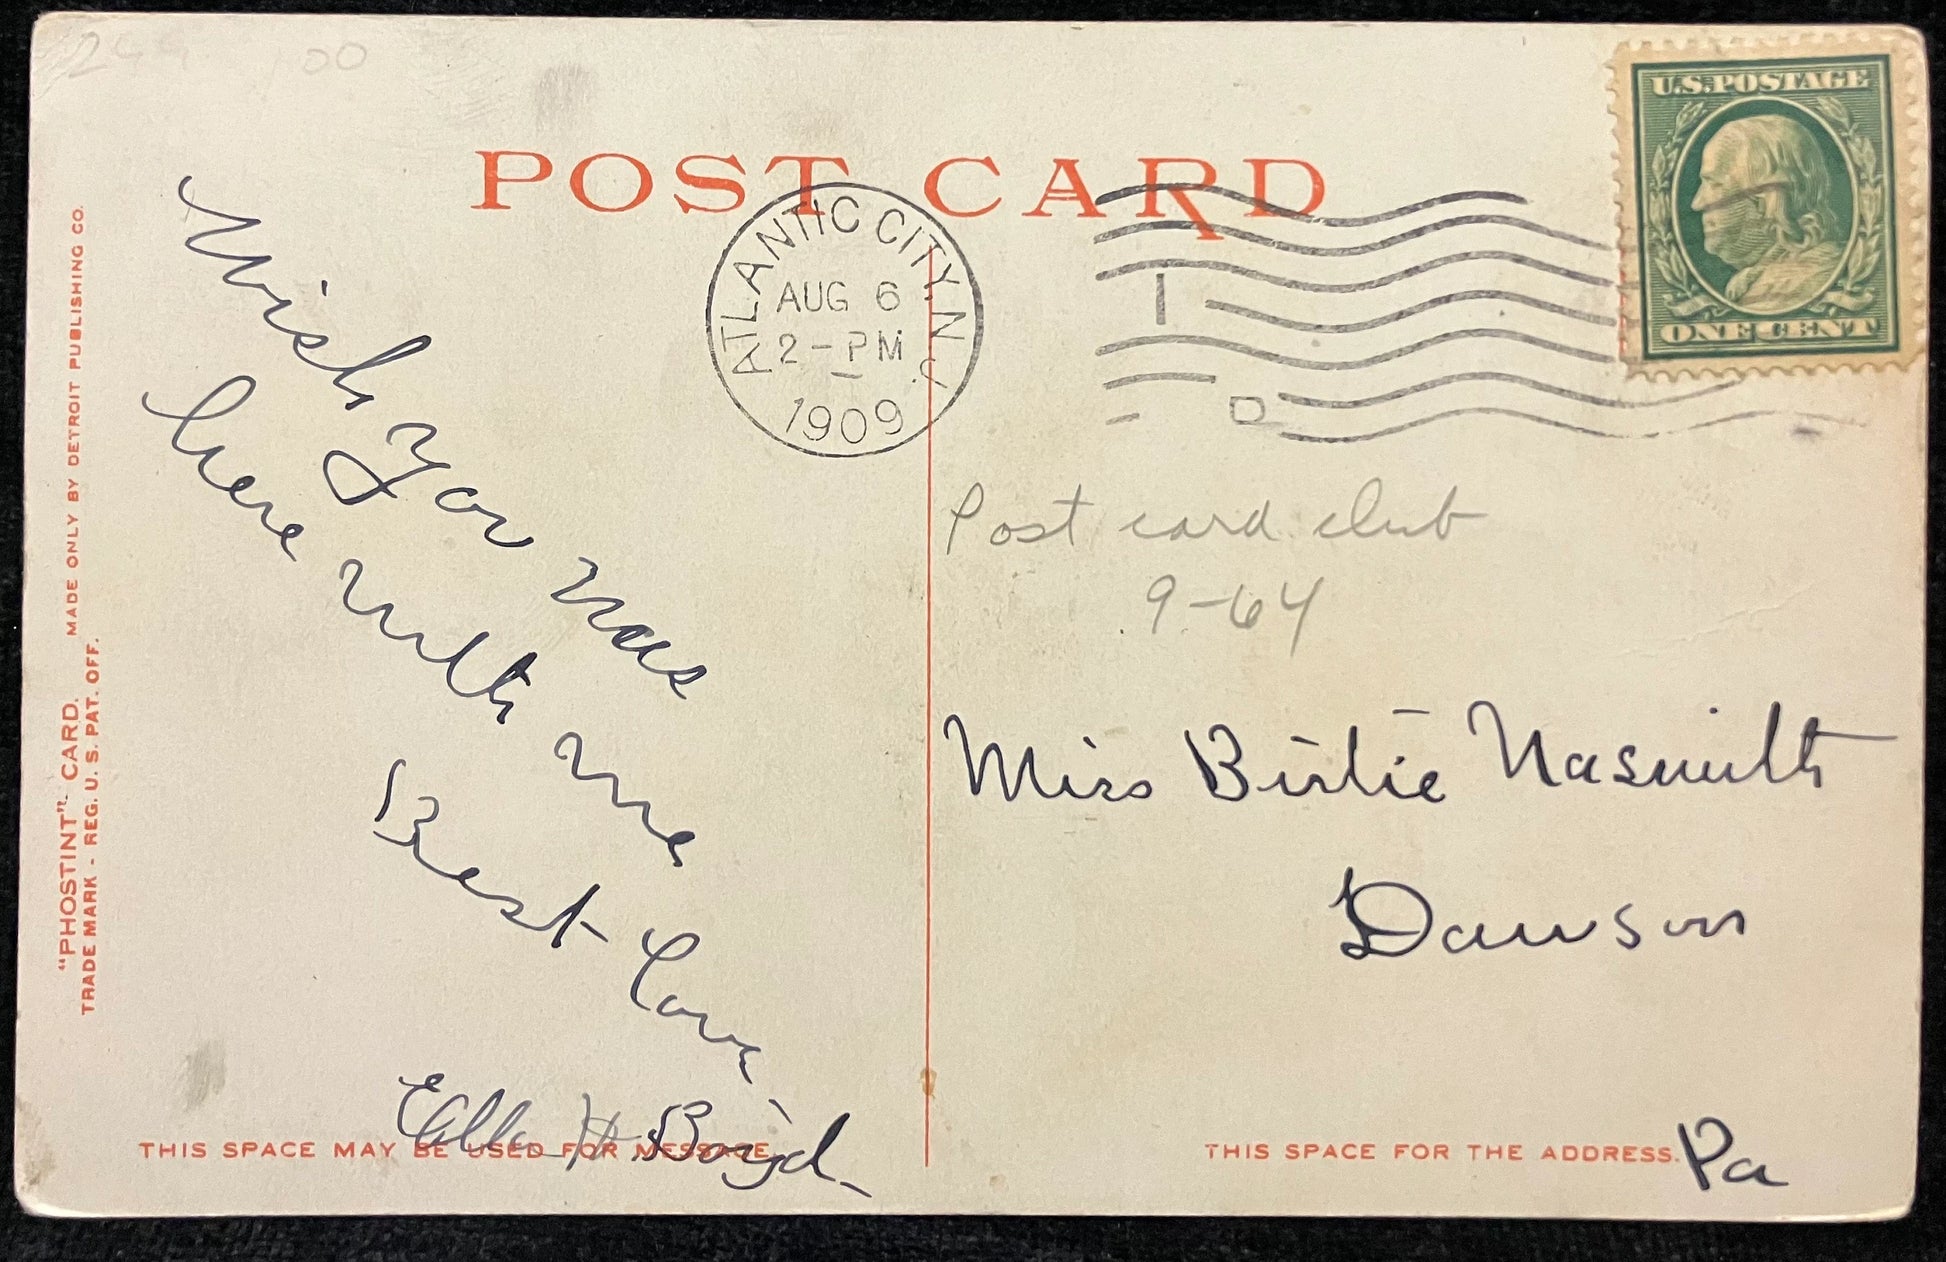 244 00
POST CARD
U.S. POSTAGE
ONE CENT
ATLANTIC CITY, N.J.
AUG 6
2-PM
1909
1
D
Wish you was
here with me
Best Love
Ella H Boyd
Post card club
9-64
Miss Birtie Nasmith
Dawson
Pa
"PHOSTINT" CARD. MADE ONLY BY DETROIT PUBLISHING CO.
TRADE MARK - REG. U. S. PAT. OFF.
THIS SPACE MAY BE USED FOR MESSAGE
THIS SPACE FOR THE ADDRESS.